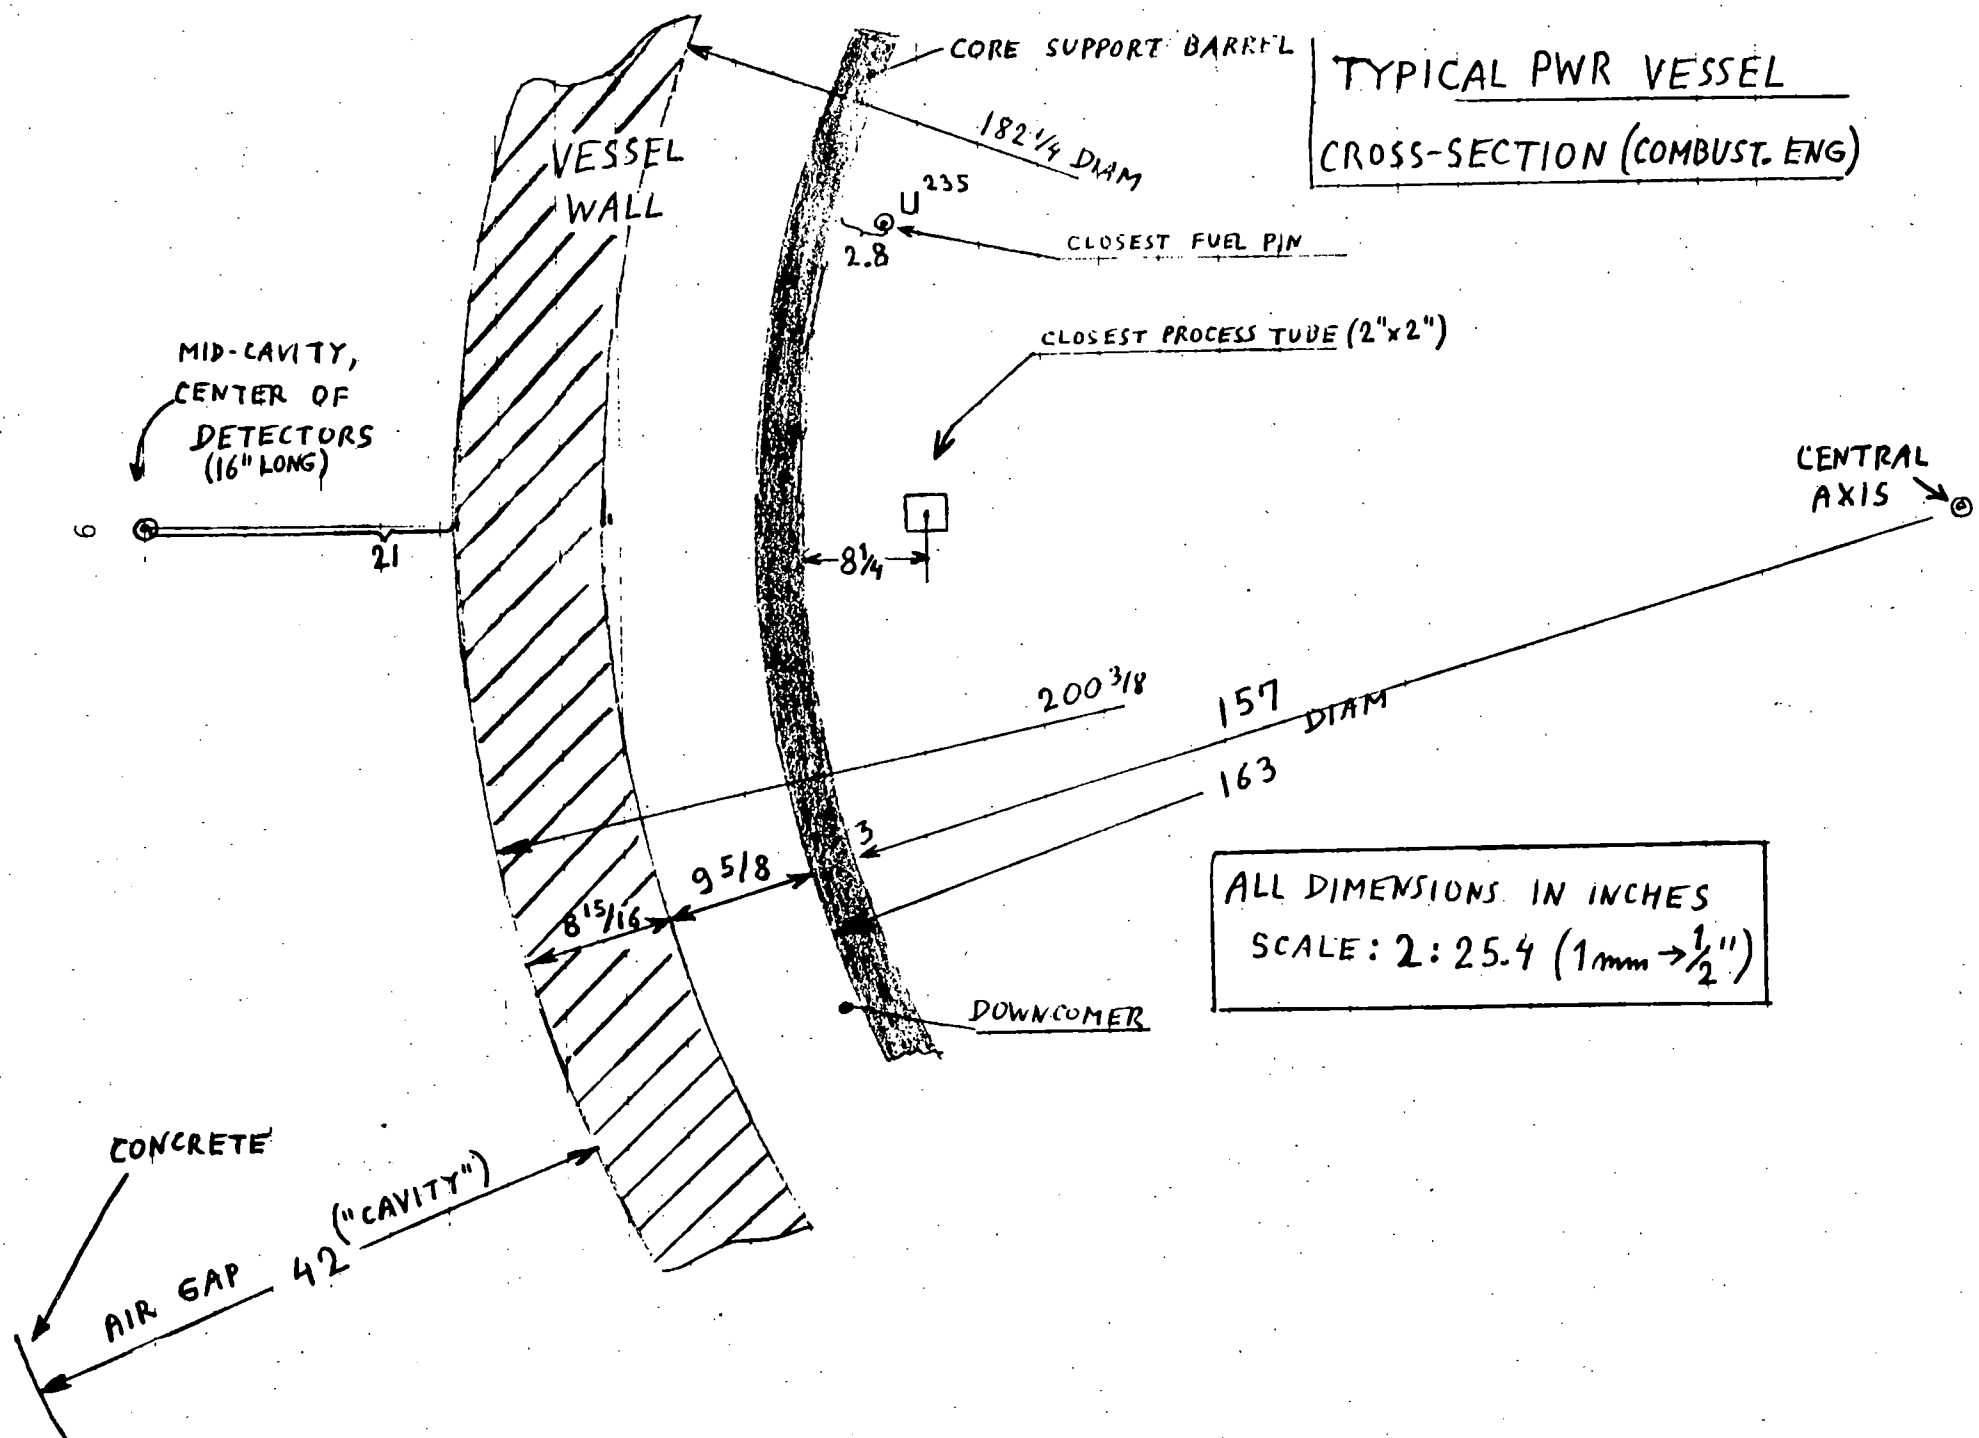 CORE SUPPORT BARREL
TYPICAL PWR VESSEL
CROSS-SECTION (COMBUST. ENG)
182 1/4 DIAM
VESSEL
WALL
U235
2.8
CLOSEST FUEL PIN
CLOSEST PROCESS TUBE (2"x2")
MID-CAVITY,
CENTER OF
DETECTORS
(16" LONG)
CENTRAL
AXIS
6
21
8 1/4
200 3/8
157 DIAM
163
3
9 5/8
8 15/16
ALL DIMENSIONS IN INCHES
SCALE: 2:25.4 (1mm→1/2")
DOWNCOMER
CONCRETE
AIR GAP 42 ("CAVITY")